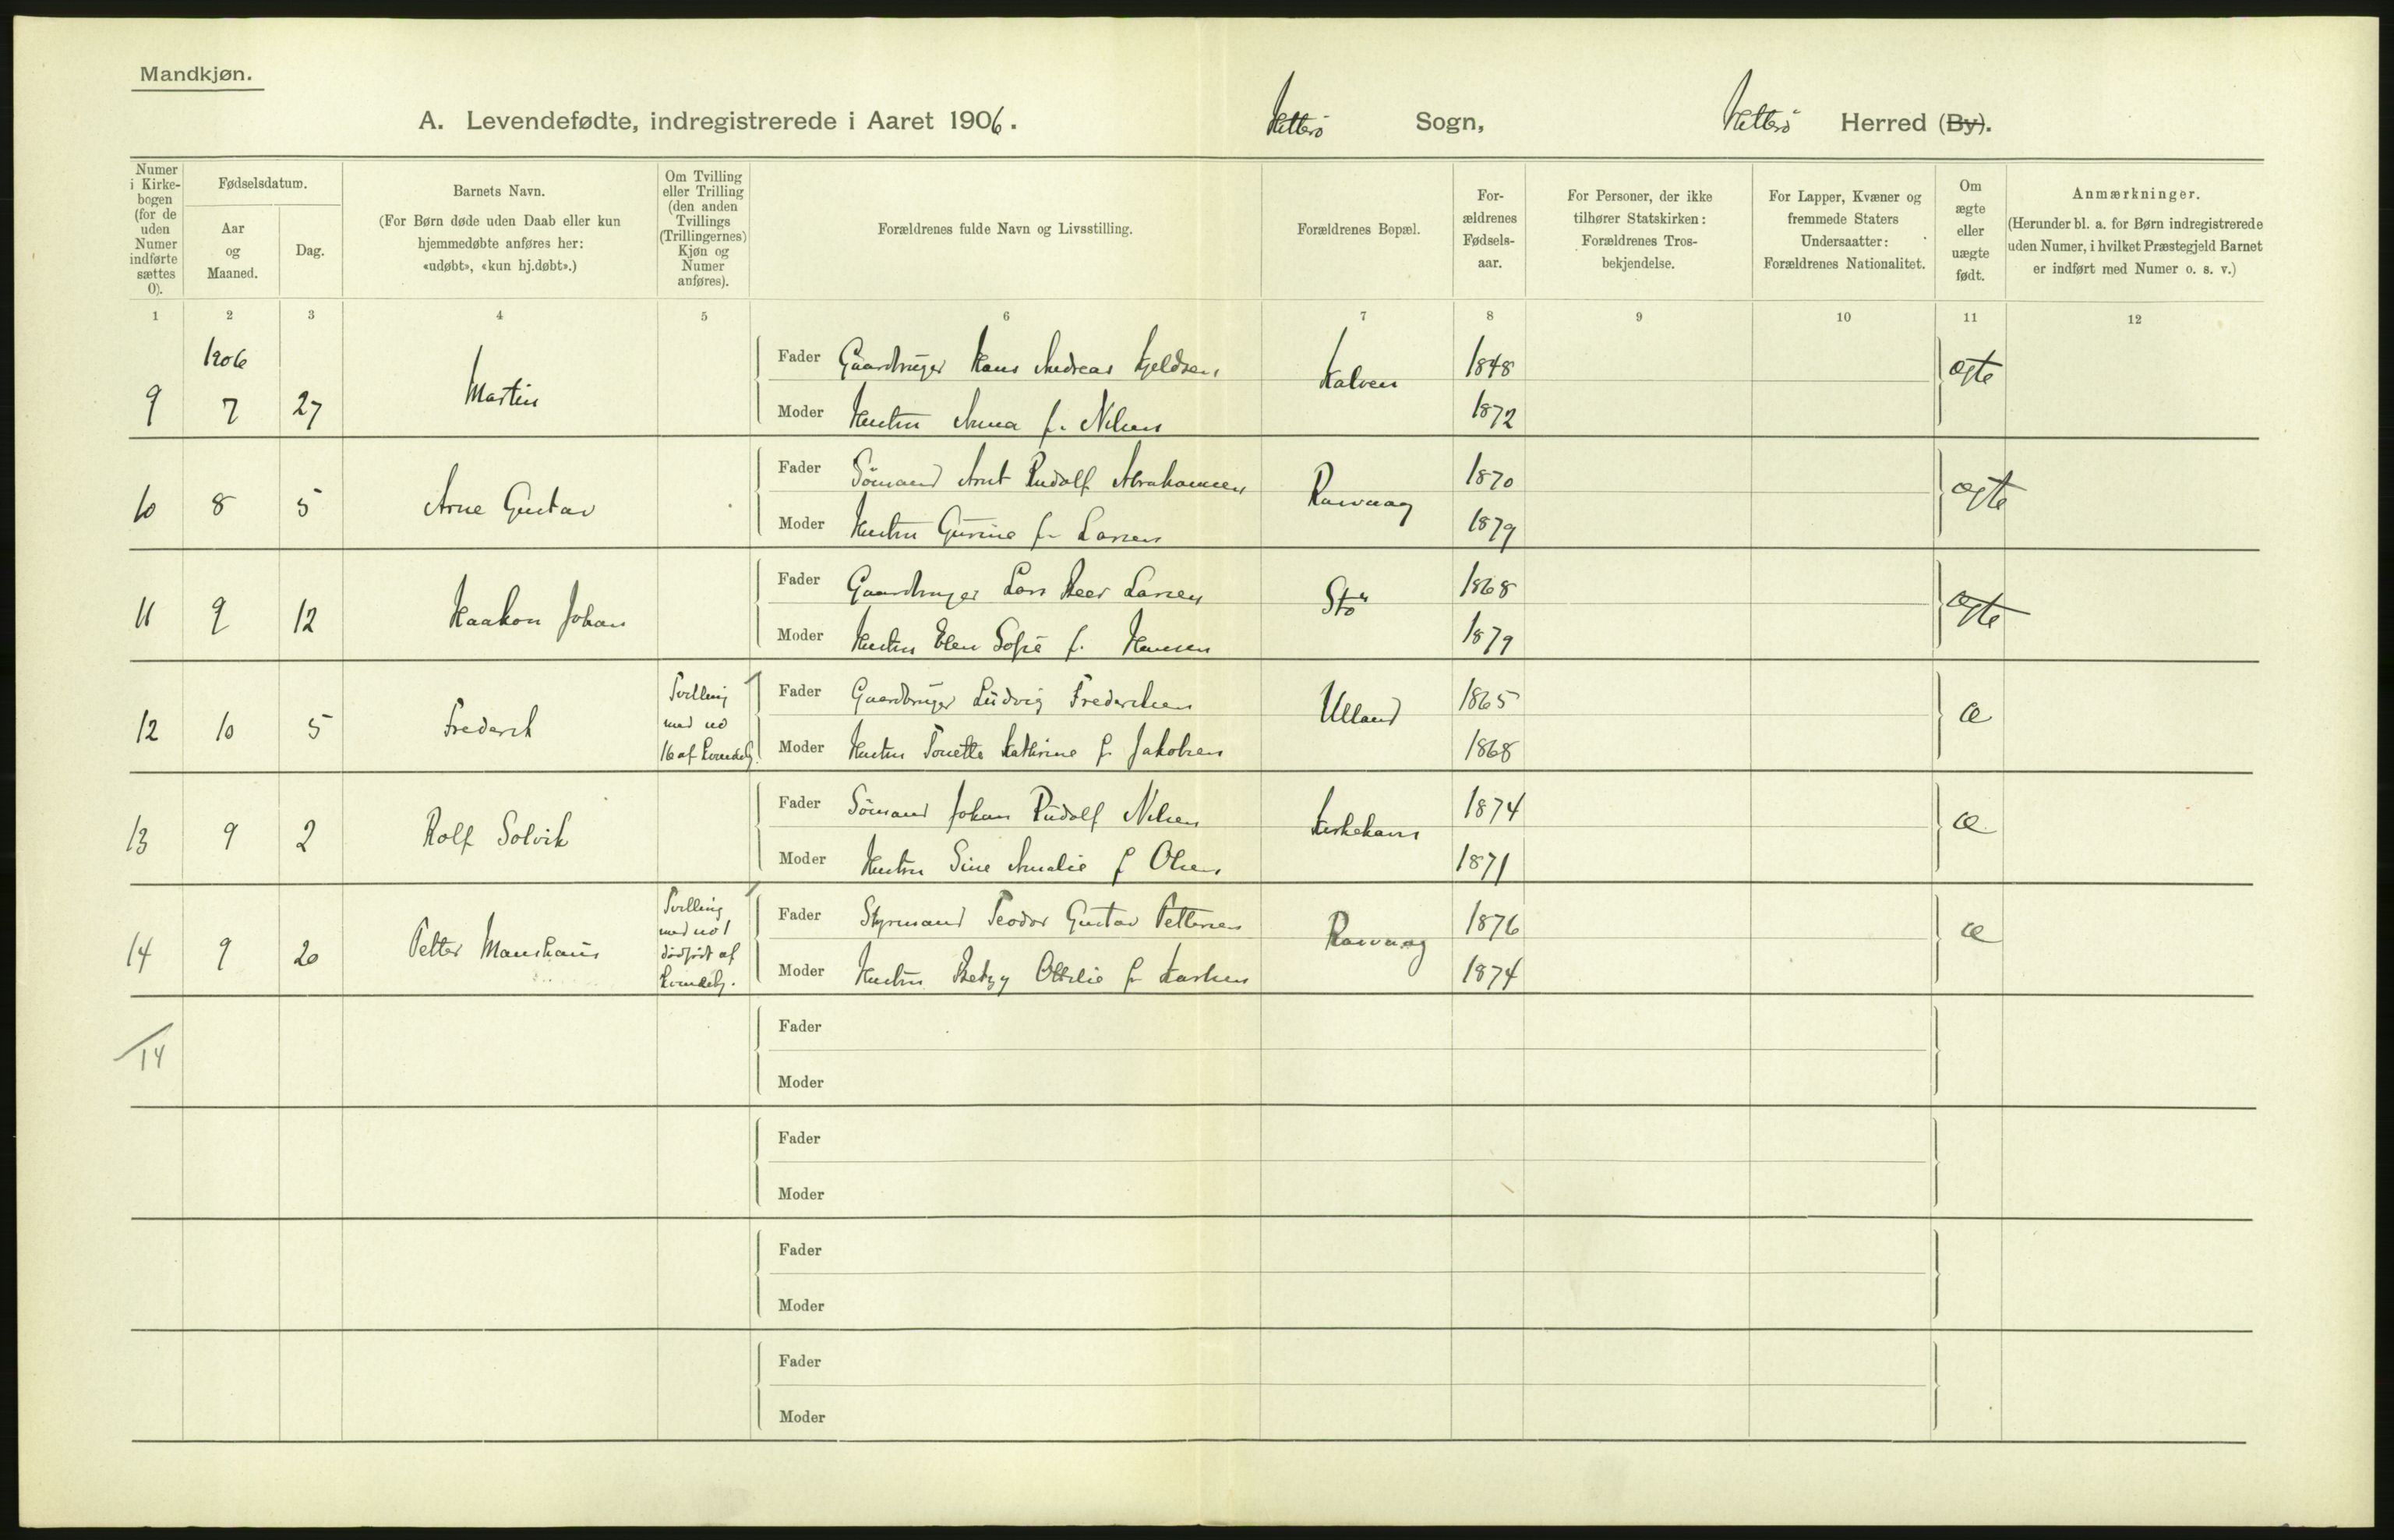 Mandkjøn.
A. Levendefødte, indregistrerede i Aaret 1906. Hitterø Sogn, Hitterø Herred (By).
Numer i Kirke-bogen (for de uden Numer indførte sættes 0).
Fødselsdatum.
Aar og Maaned.
Dag.
Barnets Navn.
(For Børn døde uden Daab eller kun
hjemmedøbte anføres her:
«udøbt», «kun hj.døbt».)
Om Tvilling
eller Trilling
(den anden
Tvillings
(Trillingernes)
Kjøn og
Numer
anføres).
Forældrenes fulde Navn og Livsstilling.
Forældrenes Bopæl.
For-
ældrenes
Fødsels-
aar.
For Personer, der ikke
tilhører Statskirken:
Forældrenes Tros-
bekjendelse.
For Lapper, Kvæner og
fremmede Staters
Undersaatter:
Forældrenes Nationalitet.
Om
ægte
eller
uægte
født.
Anmærkninger.
(Herunder bl. a. for Børn indregistrerede
uden Numer, i hvilket Præstegjeld Barnet
er indført med Numer o. s. v.)
1 2 3 4 5 6 7 8 9 10 11 12
1906
9 7 27 Martin
Fader Gaardbruger Hans Andreas Kjeldsen Kalven 1848 ægte
Moder Hustru Anna f. Nilsen 1872
10 8 5 Arne Gustav
Fader Sömand Arnt Rudolf Abrahamsen Rasvaag 1870 ægte
Moder Hustru Gurine f. Larsen 1879
11 9 12 Haakon Johan
Fader Gaardbruger Lars Peer Larsen Stö 1868 ægte
Moder Hustru Elen Sofie f. Hansen 1879
12 10 5 Frederik
Tvilling
med no
16 af Kvindekj.
Fader Gaardbruger Ludvig Frederiksen Ulland 1865 æ
Moder Hustru Tonette Kathrine f. Jakobsen 1868
13 9 2 Rolf Solvik
Fader Sömand Johan Rudolf Nilsen Kirkehavn 1874 æ
Moder Hustru Sine Amalie f Olsen 1871
14 9 20 Petter Manshaus
Tvilling
med no 1
dödfödt af
Kvindekj.
Fader Styrmand Teodor Gustav Pettersen Rasvaag 1876 æ
Moder Hustru Betzy Ottilie f. Karlsen 1874
14
Fader
Moder
Fader
Moder
Fader
Moder
Fader
Moder